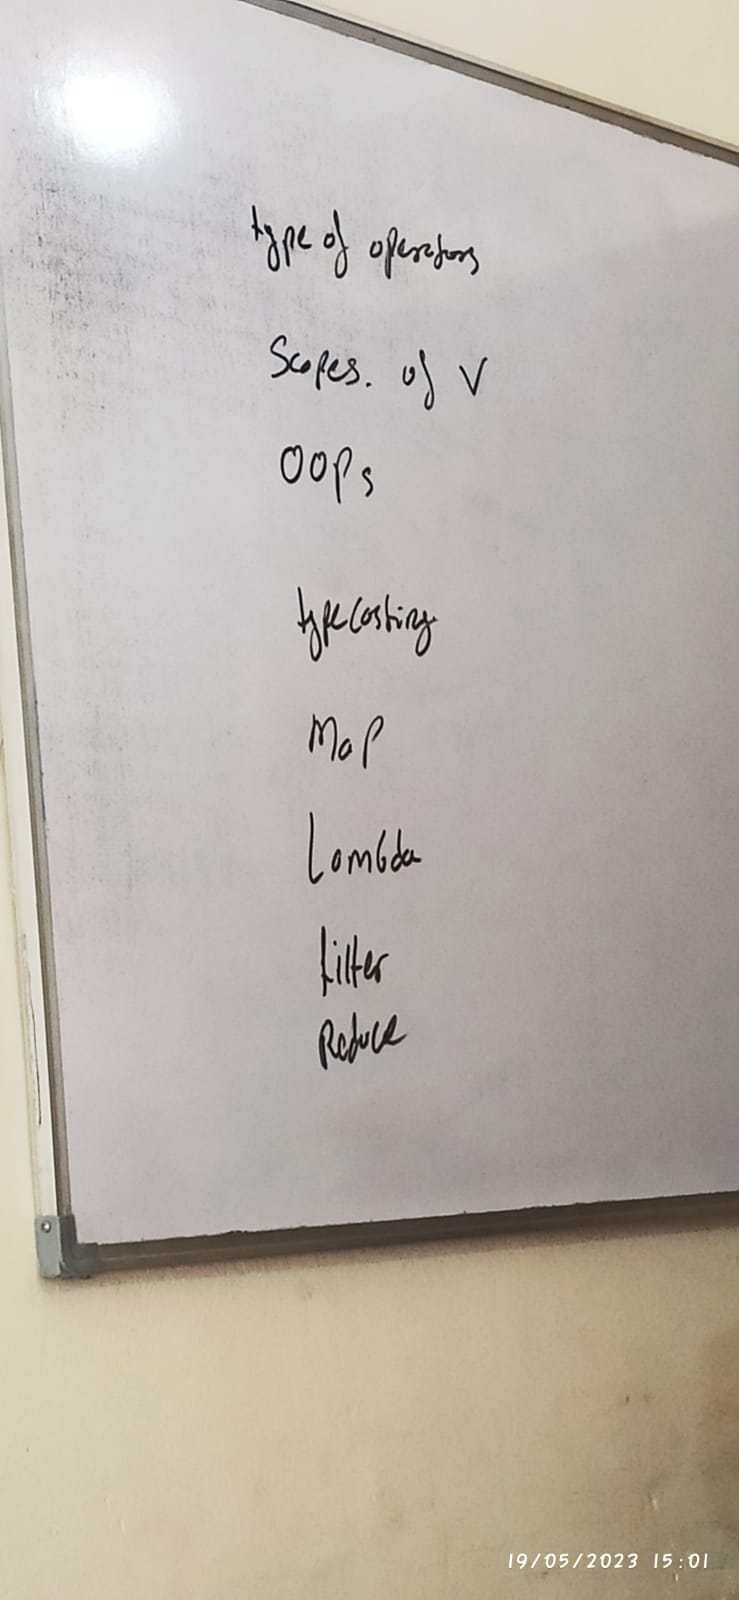 type of operators
Scopes. of V
OOPs
typecasting
Map
Lambda
filter
Reduce
19/05/2023 15:01